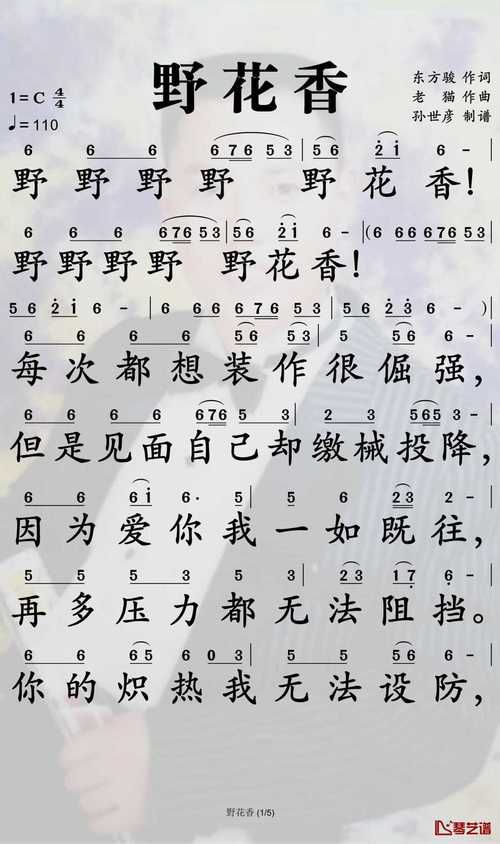 野花香
东方骏 作词
1=C 4/4
老 猫 作曲
♩=110
孙世彦 制谱
6 6 6 6 7 6 5 3 | 5 6 2 i 6 - |
野 野 野 野 野 花 香!
6 6 6 6 7 6 5 3 | 5 6 2 i 6 - | (6 6 6 6 7 6 5 3 |
野 野 野 野 野 花 香!
5 6 2 i 6 - | 6 6 6 6 7 6 5 3 | 5 6 2 3 6 - )|
6 6 6 6 5 6 5 3 | 5 5 6 6 - |
每 次 都 想 装 作 很 倔 强,
6 6 6 6 6 7 6 5 3 | 2 3 5 6 5 3 - |
但是见面自己却缴械投降,
6 6 6 i 6 · 5 | 5 6 2 3 2 - |
因 为 爱 你 我 一 如 既 往,
5 5 5 3 5 3 | 2 3 1 7 6 - |
再 多 压 力 都 无 法 阻 挡。
6 6 6 5 6 0 3 | 5 5 5 6 6 - |
你 的 炽 热 我 无 法 设 防,
野花香 (1/5)
琴艺谱